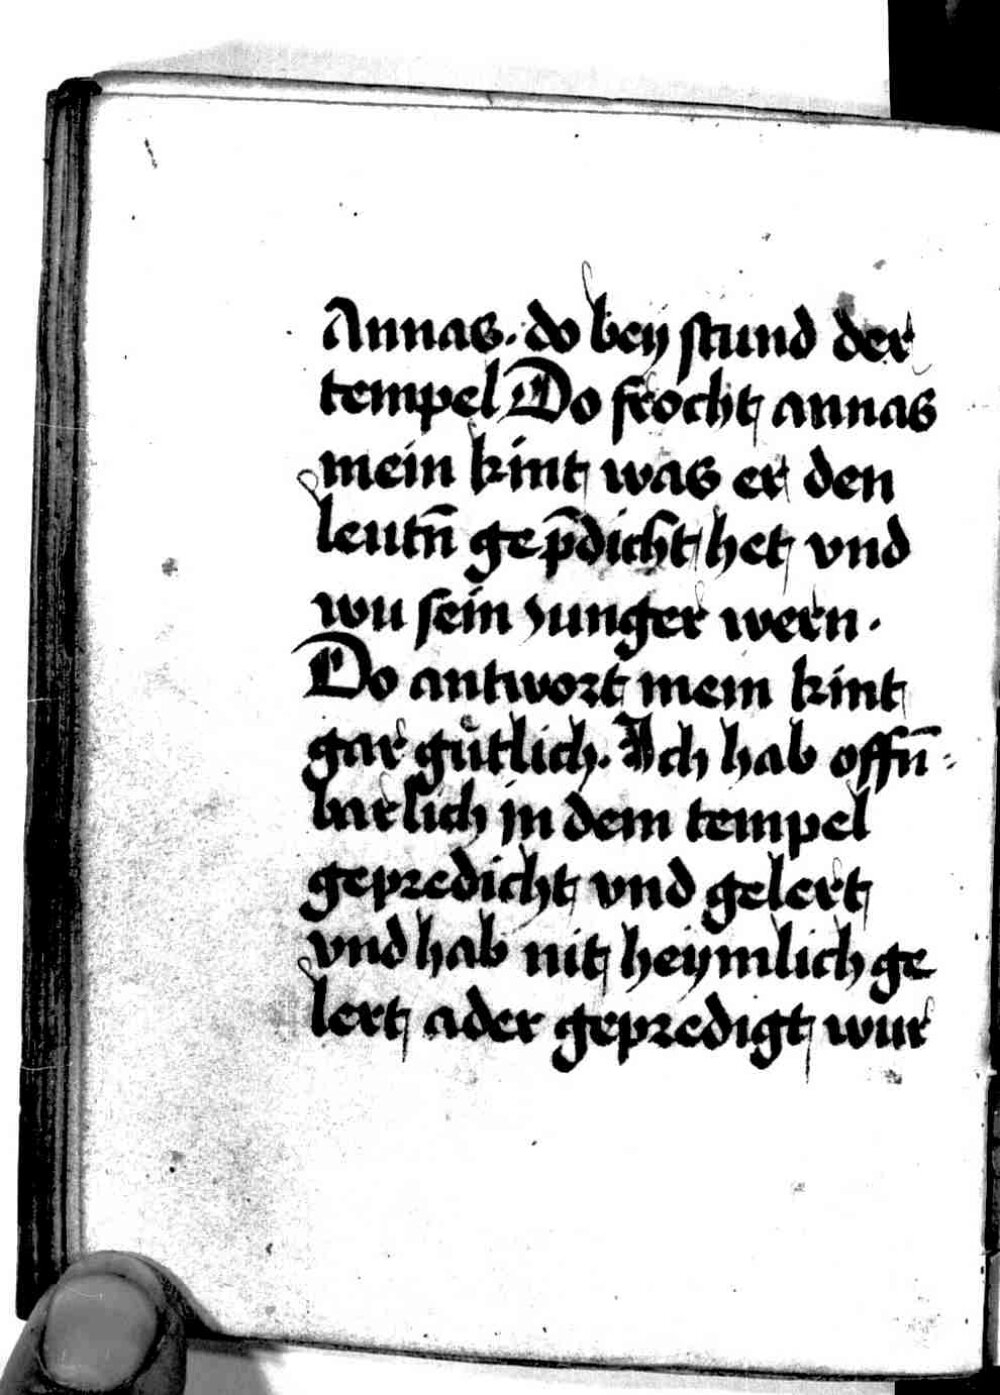 Annas. do bey stund der
tempel Do frocht annas
mein kint was er den
leutn̄ gep̄dicht het vnd
wu sein Junger wern.
Do antwort mein kint
gar gůtlich. Ich hab offn̄:
barlich in dem tempel
gepredicht vnd gelert
vnd hab nit heymlich ge
lert ader gepredigt wur